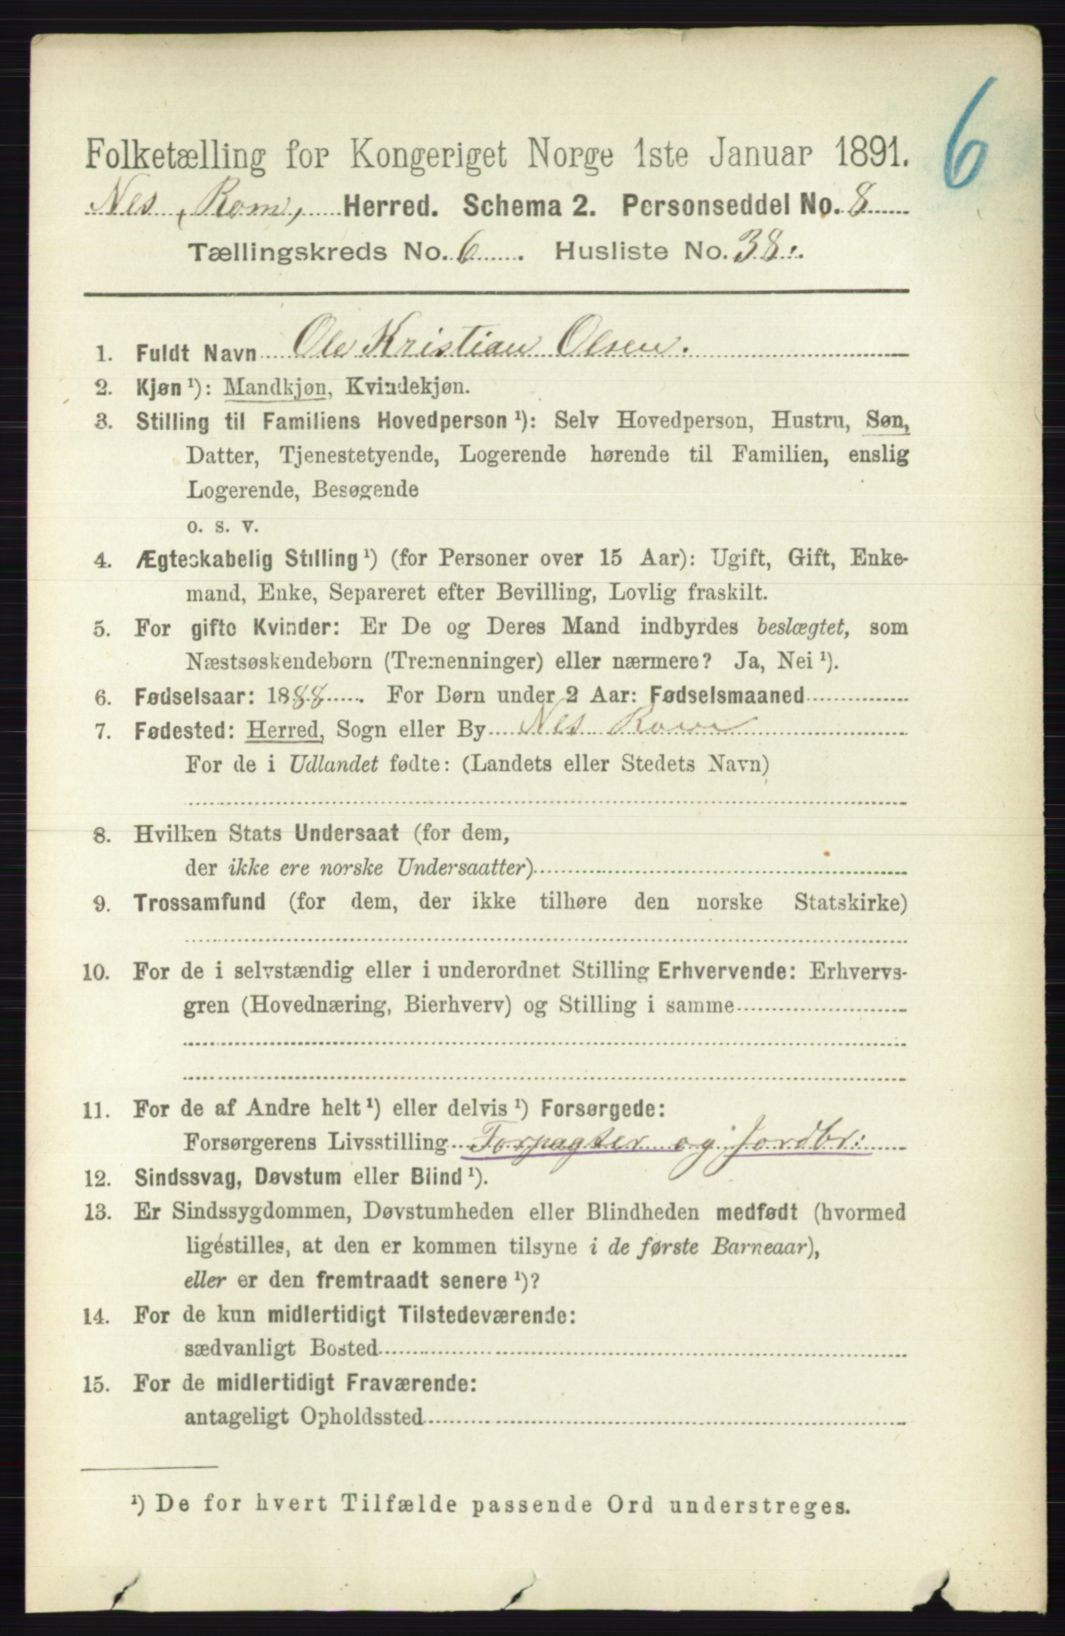 6
Folketælling for Kongeriget Norge 1ste Januar 1891.
Nes, Rom, Herred. Schema 2. Personseddel No. 8
Tællingskreds No. 6. Husliste No. 38.
1. Fuldt Navn Ole Kristian Olsen.
2. Kjøn ¹): Mandkjøn, Kvindekjøn.
3. Stilling til Familiens Hovedperson ¹): Selv Hovedperson, Hustru, Søn,
Datter, Tjenestetyende, Logerende hørende til Familien, enslig
Logerende, Besøgende
o. s. v.
4. Ægteskabelig Stilling ¹) (for Personer over 15 Aar): Ugift, Gift, Enke-
mand, Enke, Separeret efter Bevilling, Lovlig fraskilt.
5. For gifte Kvinder: Er De og Deres Mand indbyrdes beslægtet, som
Næstsøskendebørn (Tremenninger) eller nærmere? Ja, Nei ¹).
6. Fødselsaar: 1888. For Børn under 2 Aar: Fødselsmaaned
7. Fødested: Herred, Sogn eller By Nes Rom
For de i Udlandet fødte: (Landets eller Stedets Navn)
8. Hvilken Stats Undersaat (for dem,
der ikke ere norske Undersaatter)
9. Trossamfund (for dem, der ikke tilhøre den norske Statskirke)
10. For de i selvstændig eller i underordnet Stilling Erhvervende: Erhvervs-
gren (Hovednæring, Bierhverv) og Stilling i samme
11. For de af Andre helt ¹) eller delvis ¹) Forsørgede:
Forsørgerens Livsstilling Forpagter og Jordbr:
12. Sindssvag, Døvstum eller Blind ¹).
13. Er Sindssygdommen, Døvstumheden eller Blindheden medfødt (hvormed
ligéstilles, at den er kommen tilsyne i de første Barneaar),
eller er den fremtraadt senere ¹)?
14. For de kun midlertidigt Tilstedeværende:
sædvanligt Bosted
15. For de midlertidigt Fraværende:
antageligt Opholdssted
¹) De for hvert Tilfælde passende Ord understreges.